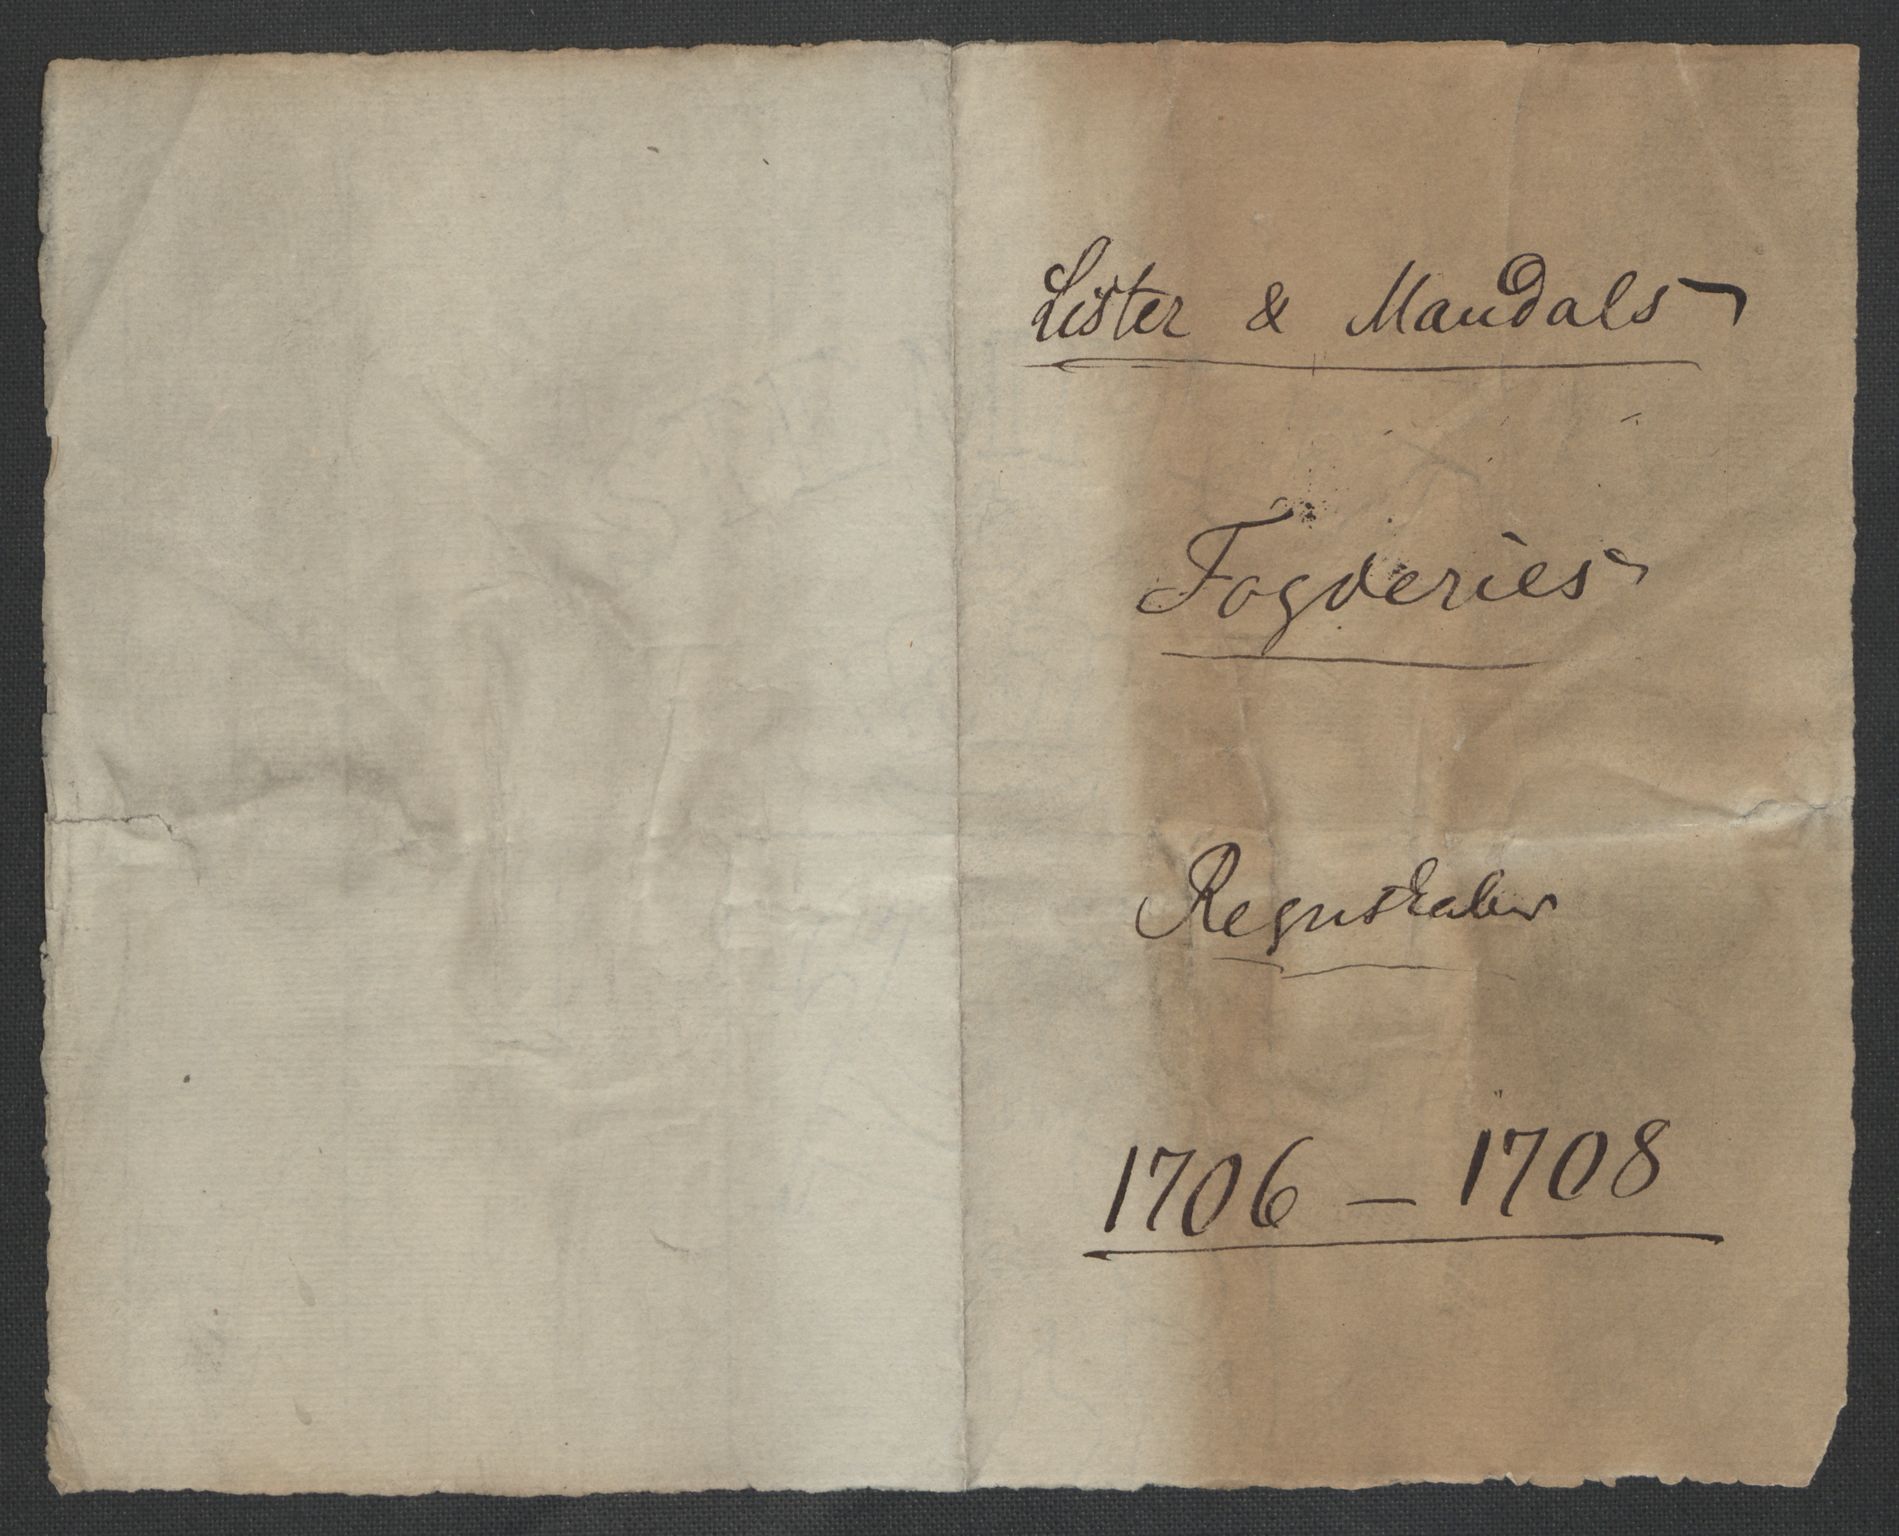 Lister & Mandals
Fogderies
Regnskaber
1706 - 1708